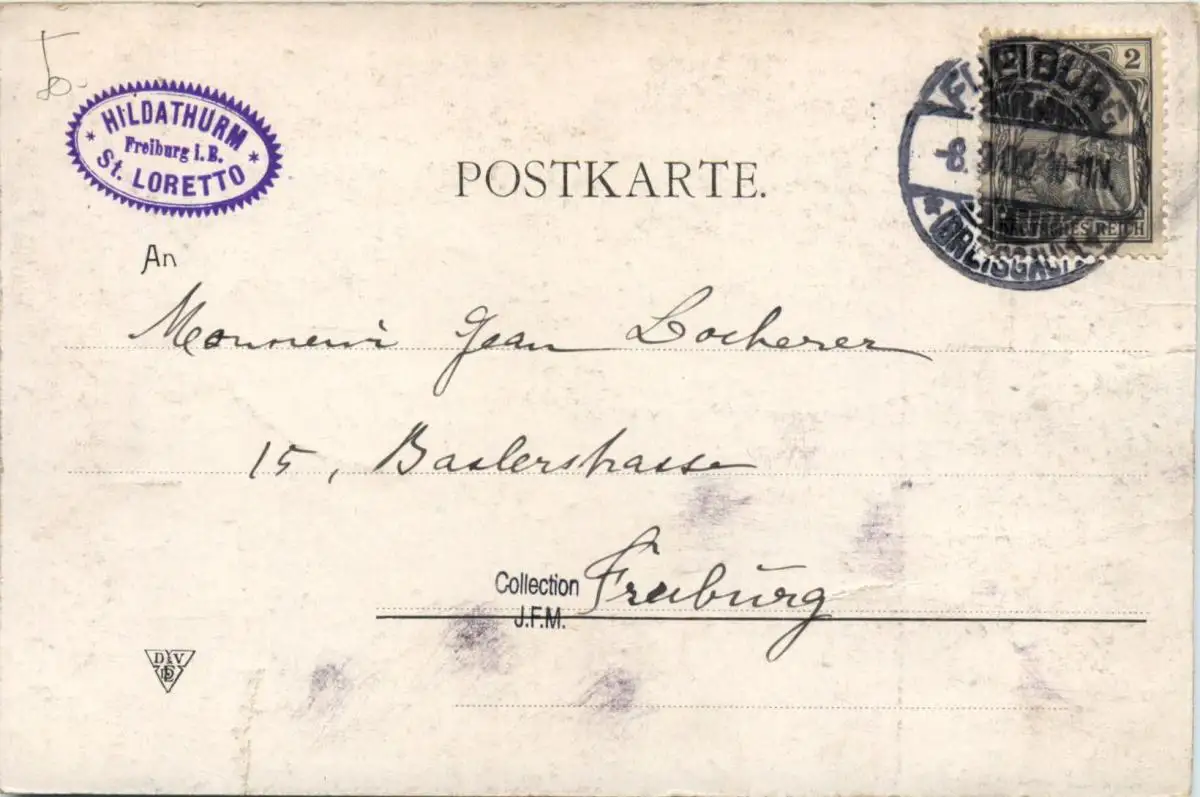 HILDATHURM
Freiburg i. B.
St. LORETTO
POSTKARTE.
2 2
FREIBURG
10-11N.
(BREISGAU)
DEUTSCHES REICH
An
Monsieur Jean Locherer
15, Baslerstrasse
Freiburg
Collection
J.F.M.